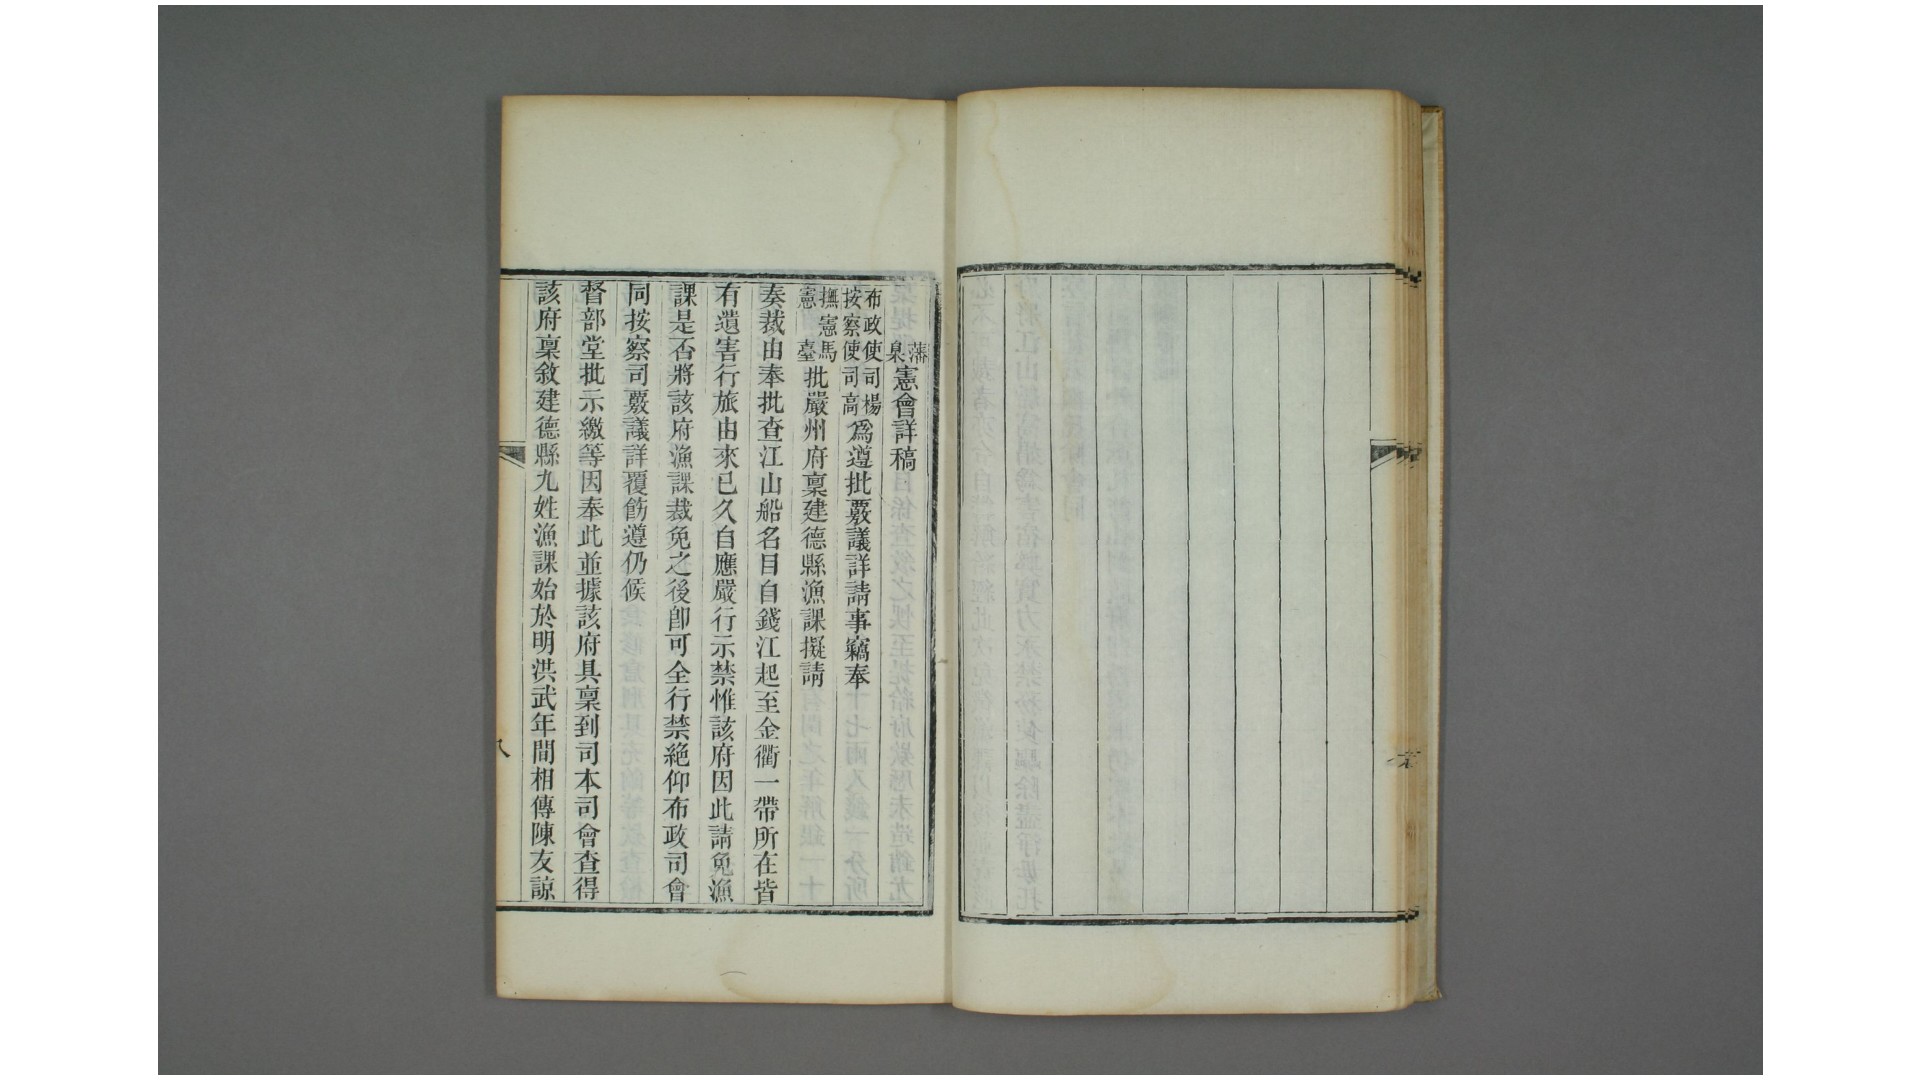 藩臬憲會詳稿
布政使司楊按察使司高為遵批覈議詳請事竊奉
撫憲馬憲臺批嚴州府稟建德縣漁課擬請
奏裁由奉批查江山船名目自錢江起至金衢一帶所在皆
有遺害行旅由來已久自應嚴行示禁惟該府因此請免漁
課是否將該府漁課裁免之後卽可全行禁絶仰布政司會
同按察司覈議詳覆飭遵仍候
督部堂批示繳等因奉此並據該府具稟到司本司會查得
該府稟敘建德縣九姓漁課始於明洪武年間相傳陳友諒
八